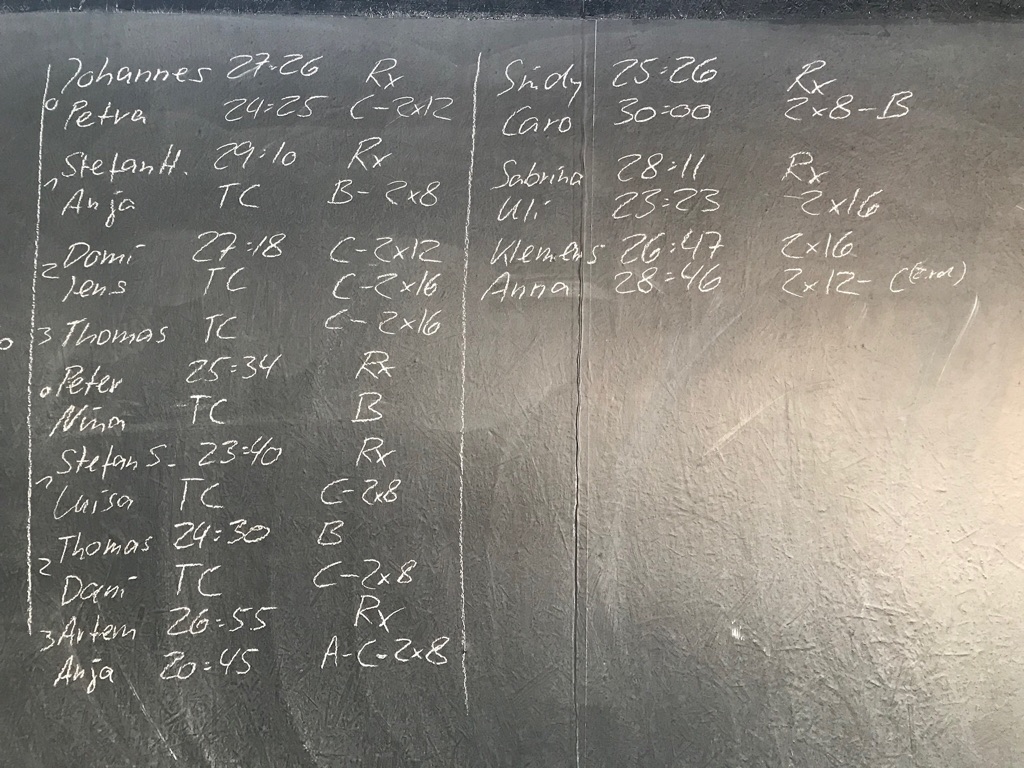 Johannes 27:26 Rx
0 Petra 24:25 C-2x12
Stefan H. 29:10 Rx
1 Anja TC B-2x8
Domi 27:18 C-2x12
2 Jens TC C-2x16
3 Thomas TC C-2x16
Peter 25:34 Rx
0 Nina TC B
Stefan S. 23:40 Rx
1 Luisa TC C-2x8
Thomas 24:30 B
2 Dani TC C-2x8
Artem 26:55 Rx
3 Anja 20:45 A-C-2x8
Sindy 25:26 Rx
Caro 30:00 2x8-B
Sabrina 28:11 Rx
Uli 23:23 -2x16
Klemens 26:47 2x16
Anna 28:46 2x12- C